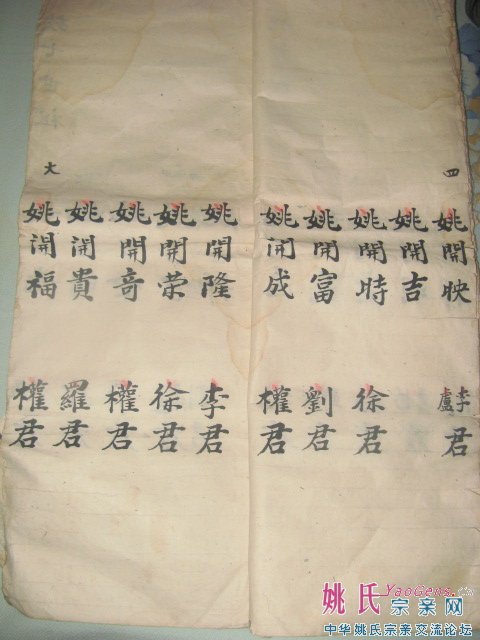 四
姚開映
姚開吉
姚開時
姚開富
姚開成
姚開隆
姚開荣
姚開竒
姚開貴
大
姚開福
李盧君
徐君
劉君
權君
李君
徐君
權君
羅君
權君
姚氏宗亲网
YaoGens.cn
中华姚氏宗亲交流论坛